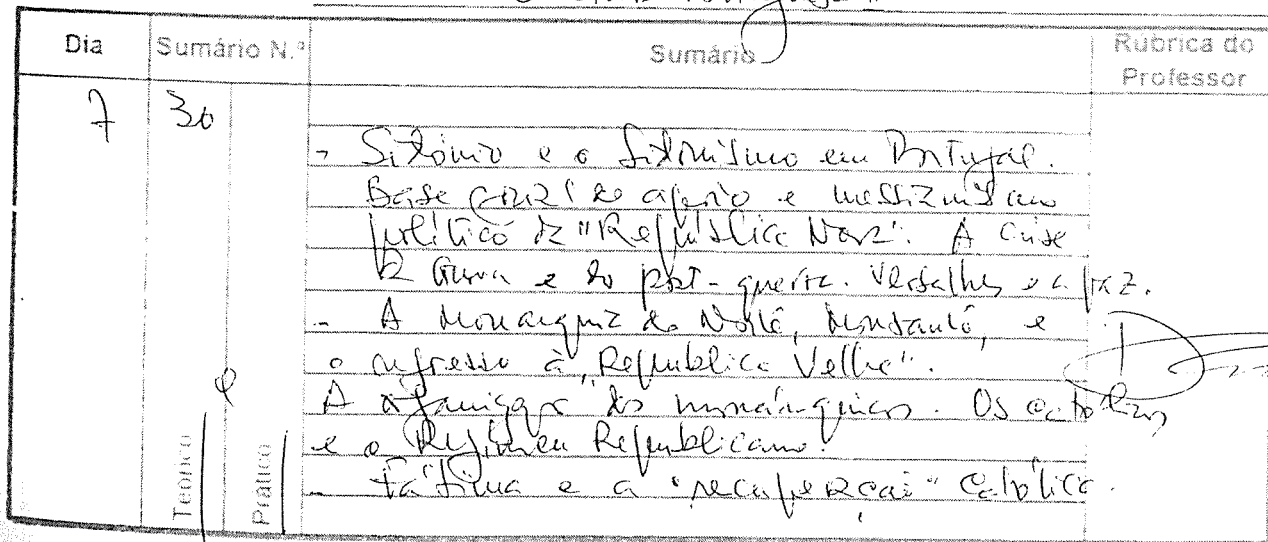 Dia Sumário N.º Sumário Rúbrica do Professor
7 30
- Sidónio e o Sidonismo em Portugal.
Base social de apoio e messianismo
político da "República Nova". A Crise
da Guerra e do pós-guerra. Versalhes e a paz.
- A Monarquia do Norte, Monsanto, e
o regresso à "Republica Velha".
A organização dos monárquicos. Os católicos
e o Regímen Republicano.
- Fátima e a "recuperação" Católica.
Teórico
Prático